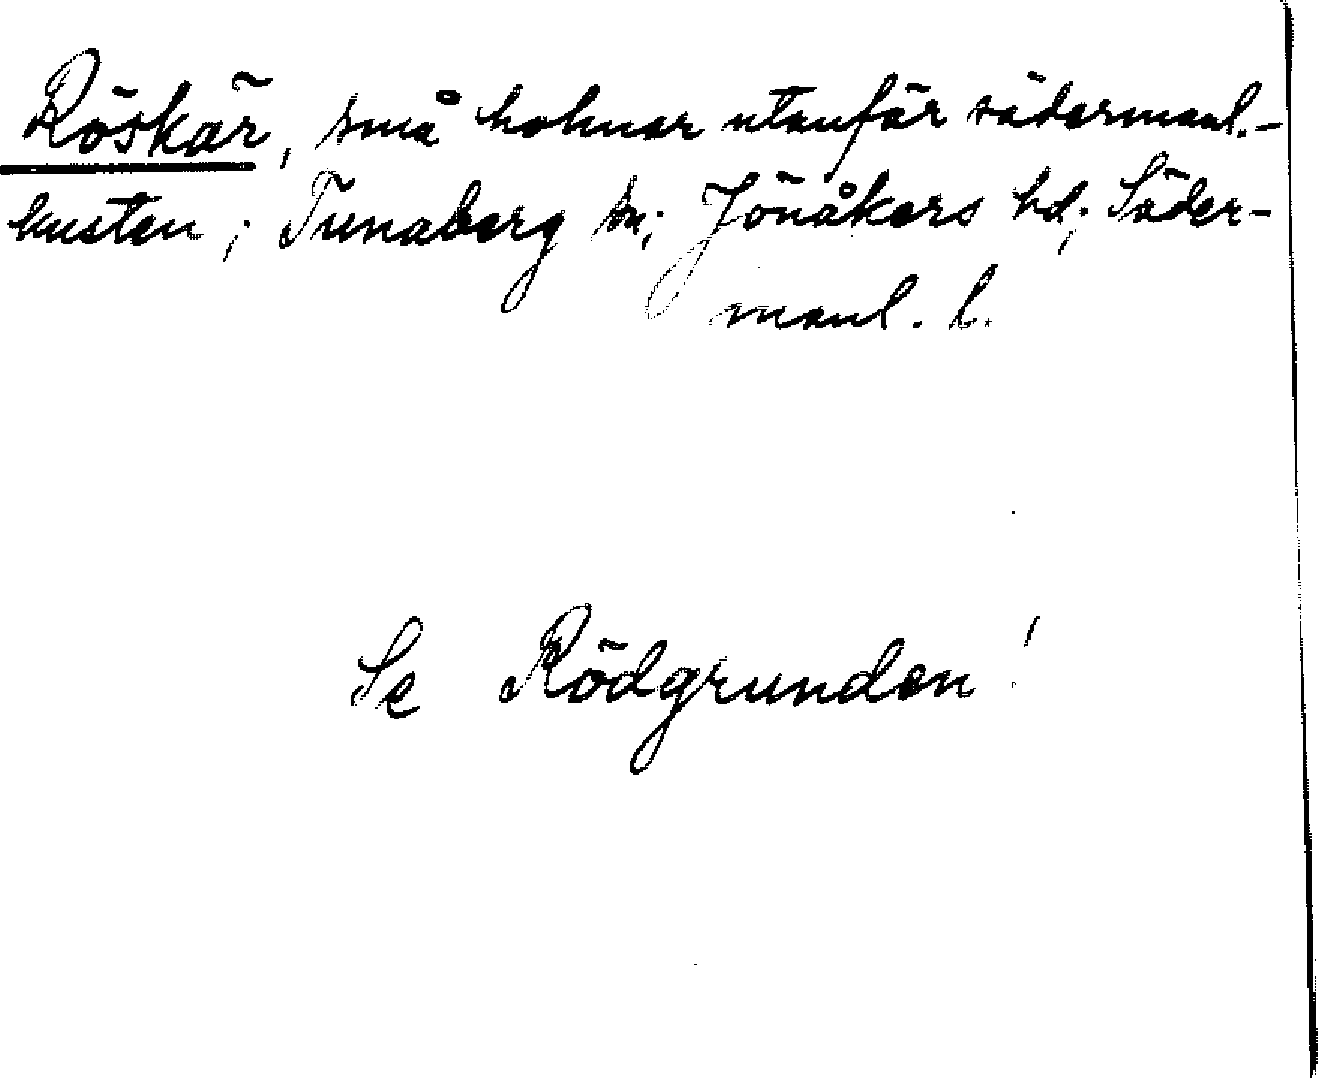 Röskär, små holmar utanför södermanl.-
kusten; Tunaberg sn; Jönåkers hd; Söder-
manl. l.
Se Rödgrunden!